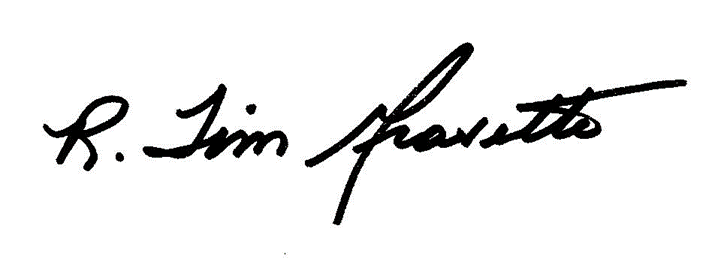 R. Tim Gravette